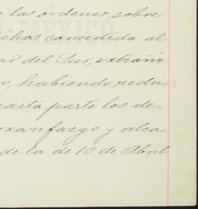 las órdenes, sobre
chos concedida al
del Sur, extraño
o, habiendo redu-
cuarta parte los de-
y alca-
de la de 10 de Abril